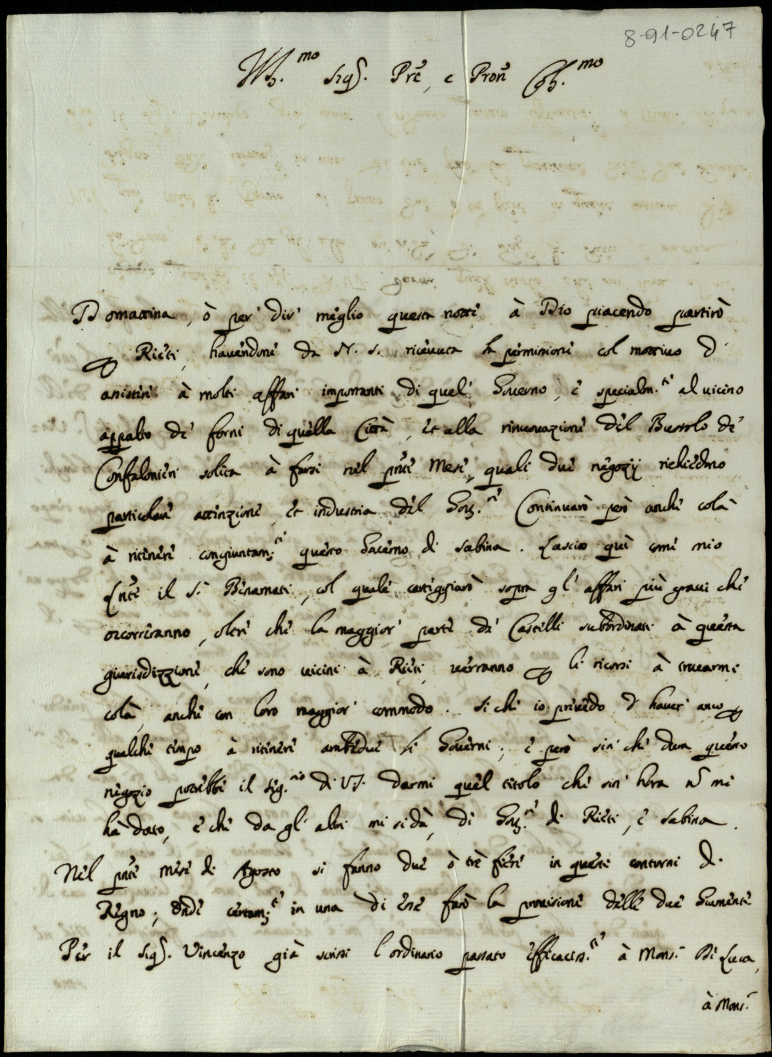 8-91-0247
Ill.mo Sig.r P.re, e P.ron Col.mo
Domattina, ò per dir' meglio questa notte à Dio piacendo partirò
per Rieti, havendone da N. S. ricevuta la permissione col motivo d'
assistere à molti affari importanti di quel' Governo, e specialm.te al vicino
appalto de' forni di quella Città, et alla rinnovazione del Bussolo de'
Confalonieri solita à farsi nel p.nte Mese, quali due negozij richiedono
particolare attenzione, et industria del Gov.re Continuarò però anche colà
à ritenere congiuntam.te questo Governo di Sabina. Lascio quì come mio
il S.r Benamati, col quale carteggiarò sopra gl'affari più gravi che
occorreranno, oltre che la maggior' parte de' Castelli subordinati à questa
giurisdizzione, che sono vicini à Rieti, verranno per li ricorsi à trovarmi
colà, anche con loro maggior' commodo. Si che io prevedo d'haver' anco per
qualche tempo à ritenere ambedue li Governi; e però sin' che dura questo
negozio potrebbe il Seg.rio di V.S. darmi quel titolo che sin' hora nõ mi
hà dato, e che da gl'altri mi si dà, di Gov.re di Rieti, e Sabina.
Nel p.nte mese di Agosto si fanno due ò trè fiere in questi contorni di
Regno; Onde certam.te in una di esse farò la provisione delle due Giumente
Per il Sig.r Vincenzo già scrissi l'ordinario passato efficaciss.te à Mons.r De Luca,
à Mons.r